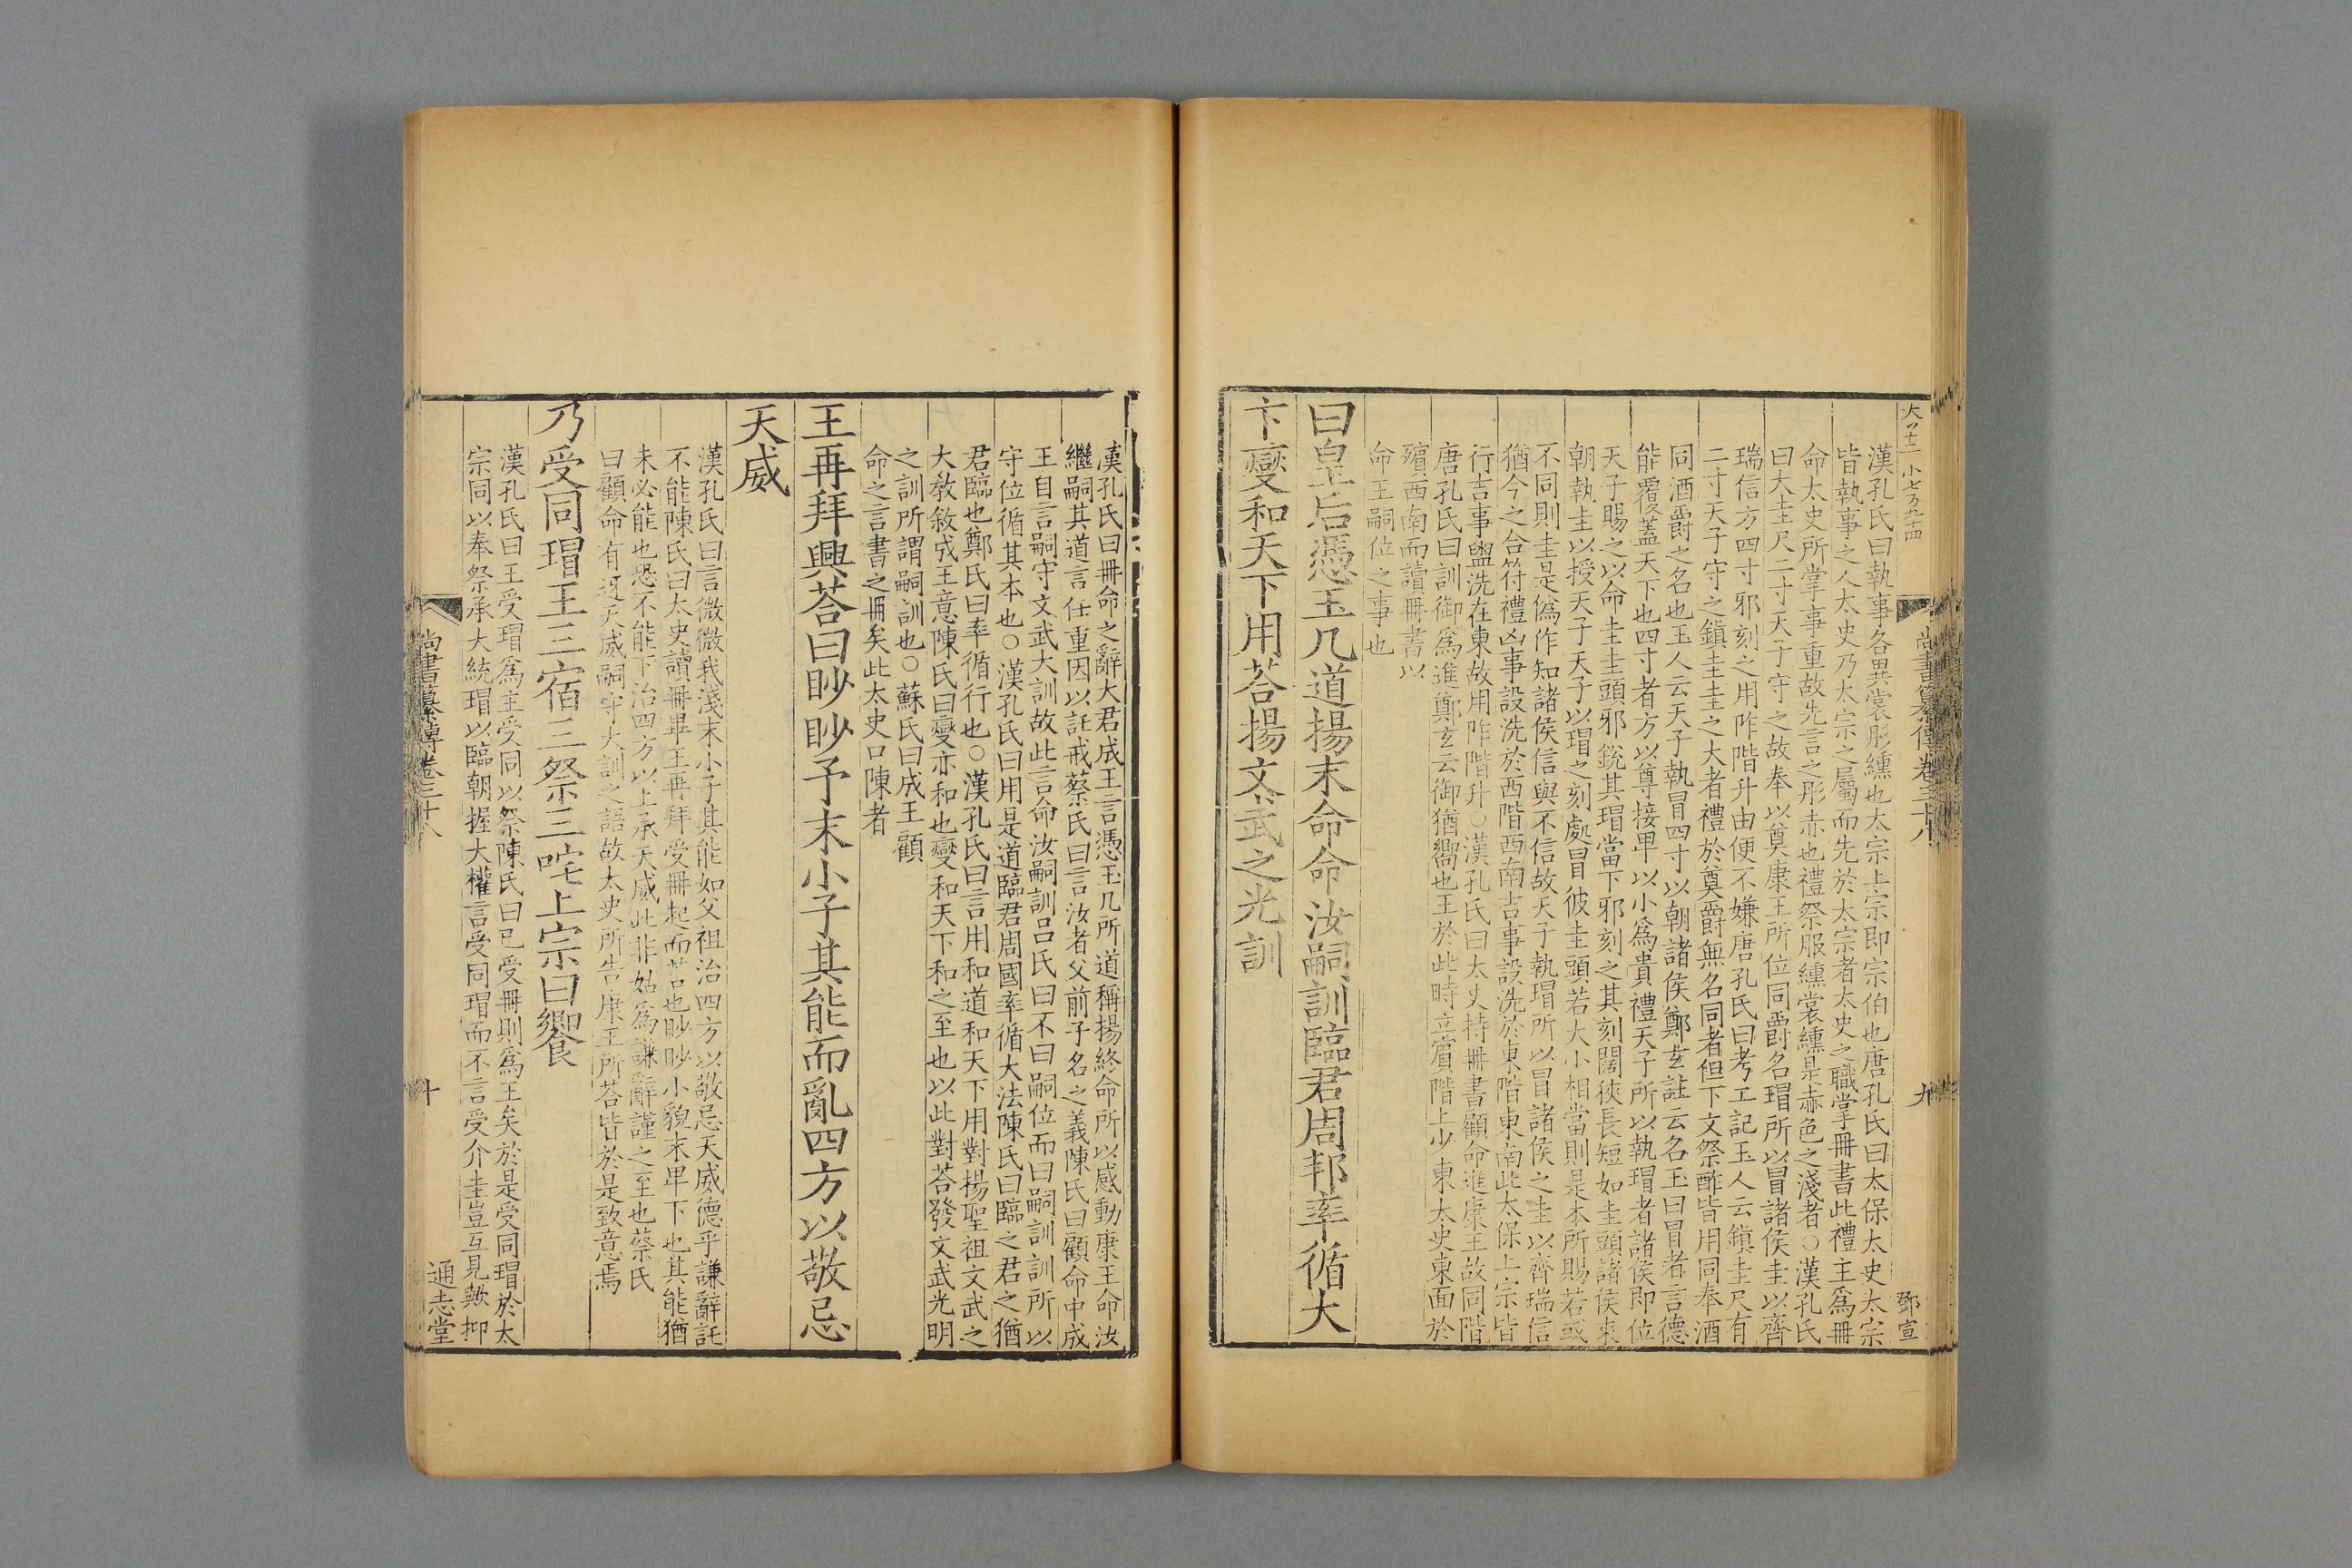 大四十二 小七百九十四
尚書纂傳卷三十八
九
鄧宣
漢孔氏曰執事各異裳彤纁也太宗上宗即宗伯也唐孔氏曰太保太史太宗
皆執事之人太史乃太宗之屬而先於太宗者太史之職掌冊書此禮主爲冊
命太史所掌事重故先言之彤赤也禮祭服纁裳纁是赤色之淺者○漢孔氏
曰大圭尺二寸天子守之故奉以奠康王所位同爵名瑁所以冒諸侯圭以齊
瑞信方四寸邪刻之用阼階升由便不嫌唐孔氏曰考工記玉人云鎮圭尺有
二寸天子守之鎮圭圭之大者禮於奠爵無名同者但下文祭酢皆用同奉酒
同酒爵之名也玉人云天子執冒四寸以朝諸侯鄭玄註云名玉曰冒者言德
能覆蓋天下也四寸者方以尊接卑以小爲貴禮天子所以執瑁者諸侯即位
天子賜之以命圭圭頭邪銳其瑁當下邪刻之其刻闊狹長短如圭頭諸侯來
朝執圭以授天子天子以瑁之刻處冒彼圭頭若大小相當則是本所賜若或
不同則圭是僞作知諸侯信與不信故天子執瑁所以冒諸侯之圭以齊瑞信
猶今之合符禮凶事設洗於西階西南吉事設洗於東階東南此太保上宗皆
行吉事盥洗在東故用阼階升○漢孔氏曰太史持冊書顧命進康王故同階
唐孔氏曰訓御爲進鄭玄云御猶嚮也王於此時立賔階上少東太史東面於
殯西南而讀冊書以
命王嗣位之事也
曰皇后憑玉几道揚末命命汝嗣訓臨君周邦率循大
卞燮和天下用荅揚文武之光訓
漢孔氏曰冊命之辭大君成王言憑玉几所道稱揚終命所以感動康王命汝
繼嗣其道言任重因以託戒蔡氏曰言汝者父前子名之義陳氏曰顧命中成
王自言嗣守文武大訓故此言命汝嗣訓吕氏曰不曰嗣位而曰嗣訓訓所以
守位循其本也○漢孔氏曰用是道臨君周國率循大法陳氏曰臨之君之猶
君臨也鄭氏曰率循行也○漢孔氏曰言用和道和天下用對揚聖祖文武之
大教敘成王意陳氏曰燮亦和也燮和天下和之至也以此對荅發文武光明
之訓所謂嗣訓也○蘇氏曰成王顧
命之言書之冊矣此太史口陳者
王再拜興荅曰眇眇予末小子其能而亂四方以敬忌
天威
漢孔氏曰言微微我淺末小子其能如父祖治四方以敬忌天威德乎謙辭託
不能陳氏曰太史讀冊畢王再拜受冊起而荅也眇眇小貌末卑下也其能猶
未必能也恐不能下治四方以上承天威此非姑爲謙辭謹之至也蔡氏
曰顧命有迓天威嗣守大訓之語故太史所告康王所荅皆於是致意焉
乃受同瑁王三宿三祭三咤上宗曰饗
漢孔氏曰王受瑁爲主受同以祭陳氏曰已受冊則爲王矣於是受同瑁於太
宗同以奉祭承大統瑁以臨朝握大權言受同瑁而不言受介圭豈互見歟抑
尚書纂傳卷三十八
十
通志堂